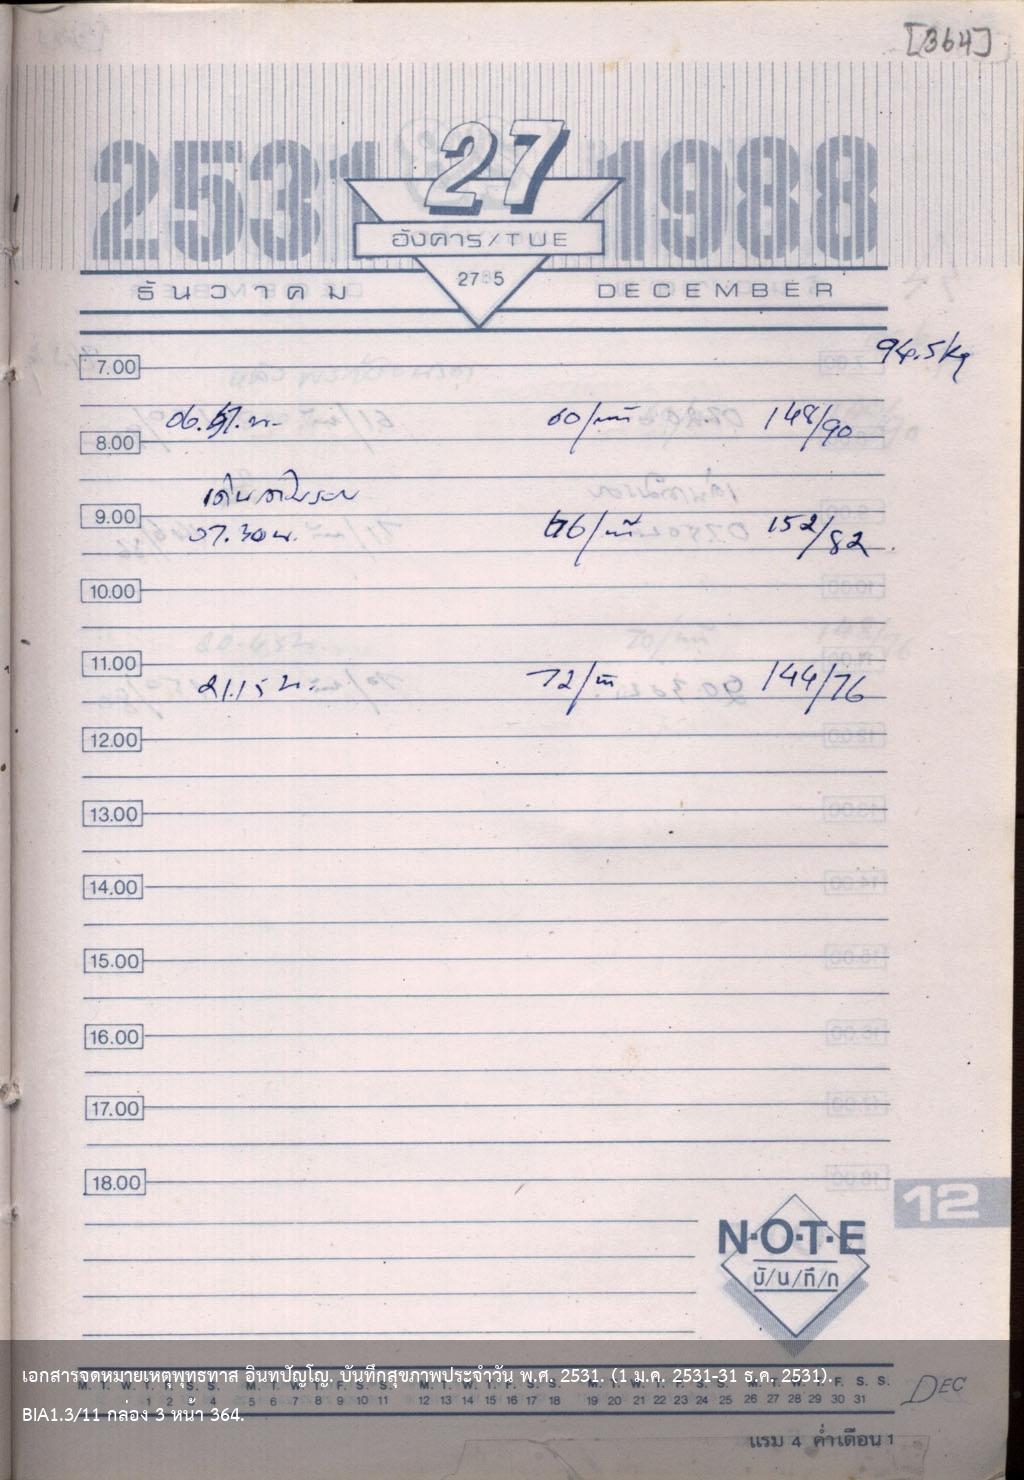 [364]
2531 27 1988
อังคาร/TUE
27 5
ธันวาคม DECEMBER
94.5 kg
7.00
06. น. 60/นาที 148/90
8.00
เดินตาม
9.00
07.30 น. 76/นาที 152/82
10.00
11.00
21.15 น. 72/นาที 144/76
12.00
13.00
14.00
15.00
16.00
17.00
18.00
12
N·O·T·E
บั/น/ทึ/ก
เอกสารจดหมายเหตุพุทธทาส อินทปัญโญ. บันทึกสุขภาพประจำวัน พ.ศ. 2531. (1 ม.ค. 2531-31 ธ.ค. 2531).
M. T. W. T. F. S. S. M. T. W. T. F. S. S. M. T. W. T. F. S. S. M. T. W. T. F. S. S. M. T. W. T. F. S. S.
1 2 3 4 5 6 7 8 9 10 11 12 13 14 15 16 17 18 19 20 21 22 23 24 25 26 27 28 29 30 31
DEC
BIA1.3/11 กล่อง 3 หน้า 364.
แรม 4 ค่ำเดือน 1